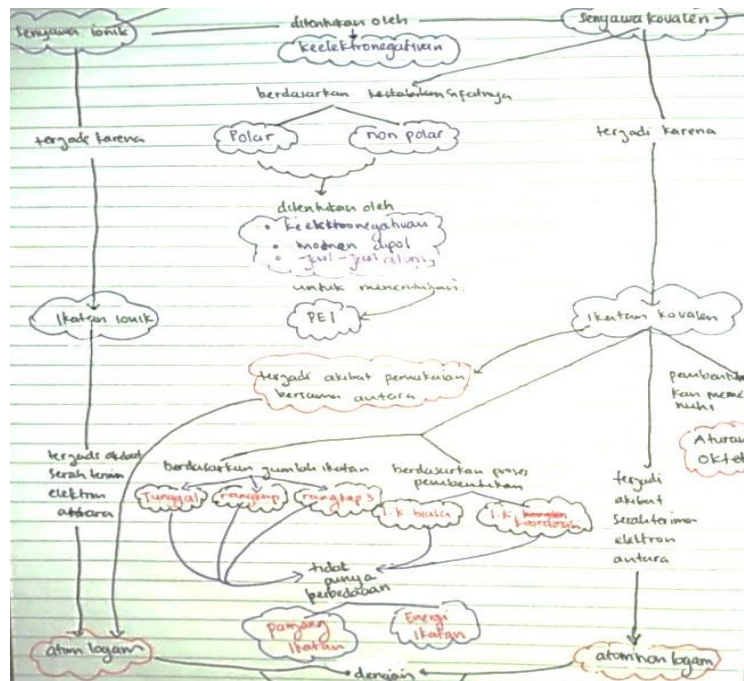 senyawa ionik
ditentukan oleh
senyawa kovalen
keelektronegativan
berdasarkan kestabilan sifatnya
Polar
non polar
terjadi karena
terjadi karena
ditentukan oleh
• keelektronegativan
• momen dipol
• jari-jari
untuk menentukan
PEI
Ikatan ionik
Ikatan kovalen
terjadi akibat pemakaian
bersama antara
pembentu
kan meme
nuhi
Aturan
Oktet
terjadi akibat
serah terima
elektron
antara
berdasarkan jumlah ikatan
berdasarkan proses
pembentukan
Tunggal
rangkap
rangkap 3
I.K. biasa
I.K. koordinasi
terjadi
akibat
serah terima
elektron
antara
tidak
punya
perbedaaan
panjang
Ikatan
Energi
Ikatan
atom logam
atom non logam
dengan